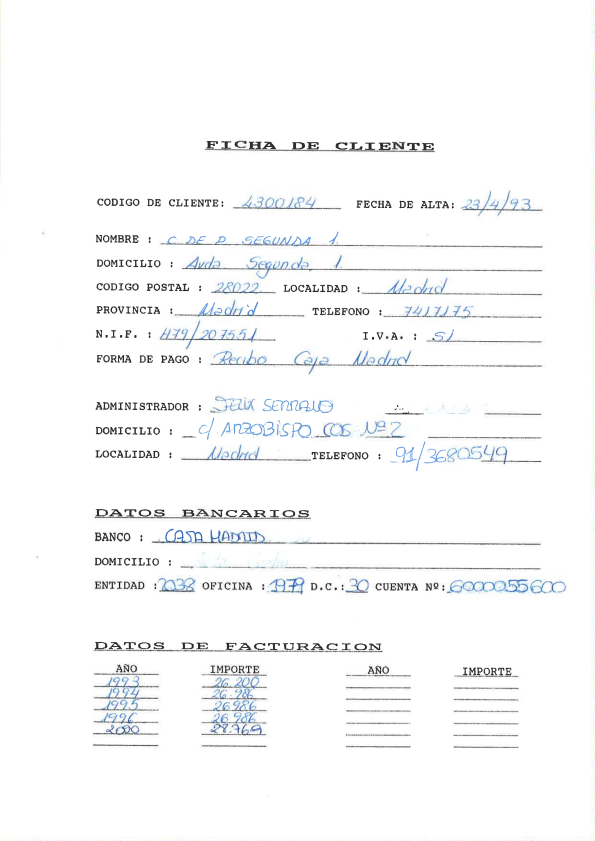 FICHA DE CLIENTE
CODIGO DE CLIENTE: 4300184 FECHA DE ALTA: 23/4/93
NOMBRE : C DE P. SEGUNDA 1.
DOMICILIO : Avda Segunda, 1.
CODIGO POSTAL : 28022 LOCALIDAD : Madrid
PROVINCIA : Madrid TELEFONO : 7417175
N.I.F. : H79/207551 I.V.A. : SI
FORMA DE PAGO : Recibo Caja Madrid
ADMINISTRADOR : FELIX SERRANO
DOMICILIO : c/ ARZOBISPO COS Nº 2
LOCALIDAD : Madrid TELEFONO : 91/3680549
DATOS BANCARIOS
BANCO : CAJA MADRID
DOMICILIO :
ENTIDAD : 2038 OFICINA : 1979 D.C.: 30 CUENTA Nº: 6000055600
DATOS DE FACTURACION
AÑO IMPORTE AÑO IMPORTE
1993 26.200
1994 26.986
1995 26986
1996 26.986
2000 28.769